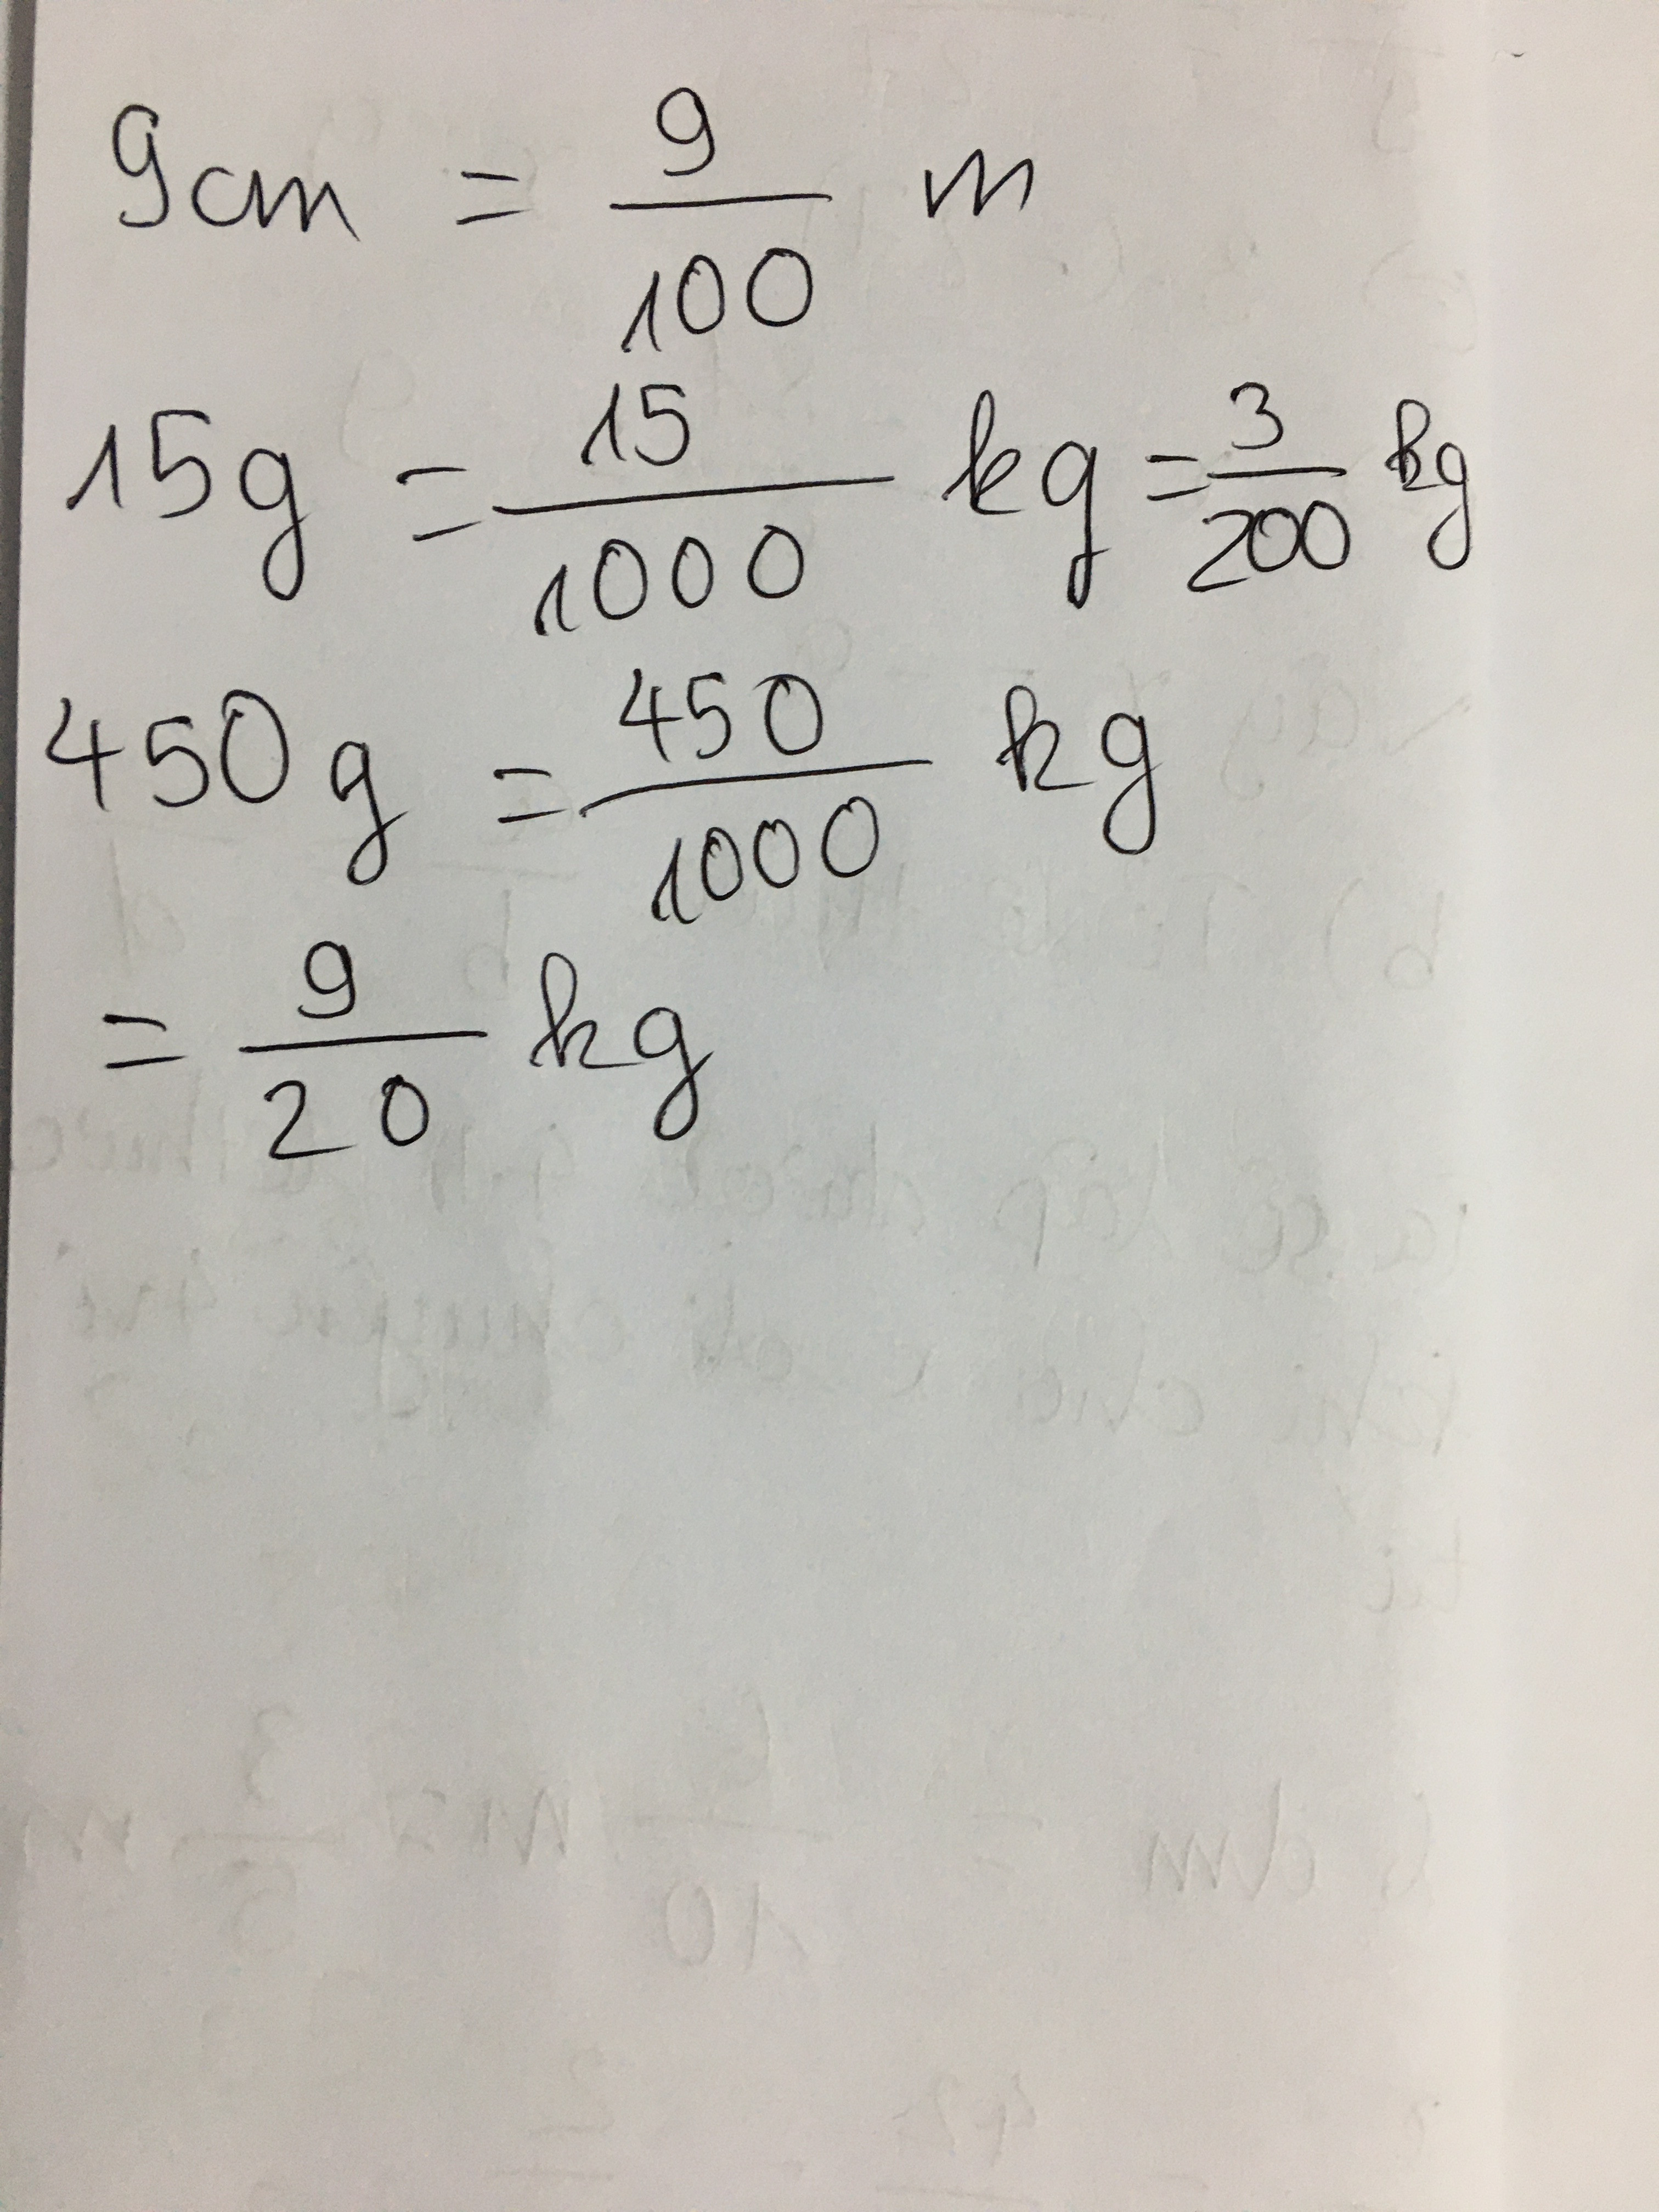 9cm = 9/100 m
15g = 15/1000 kg = 3/200 kg
450g = 450/1000 kg
= 9/20 kg